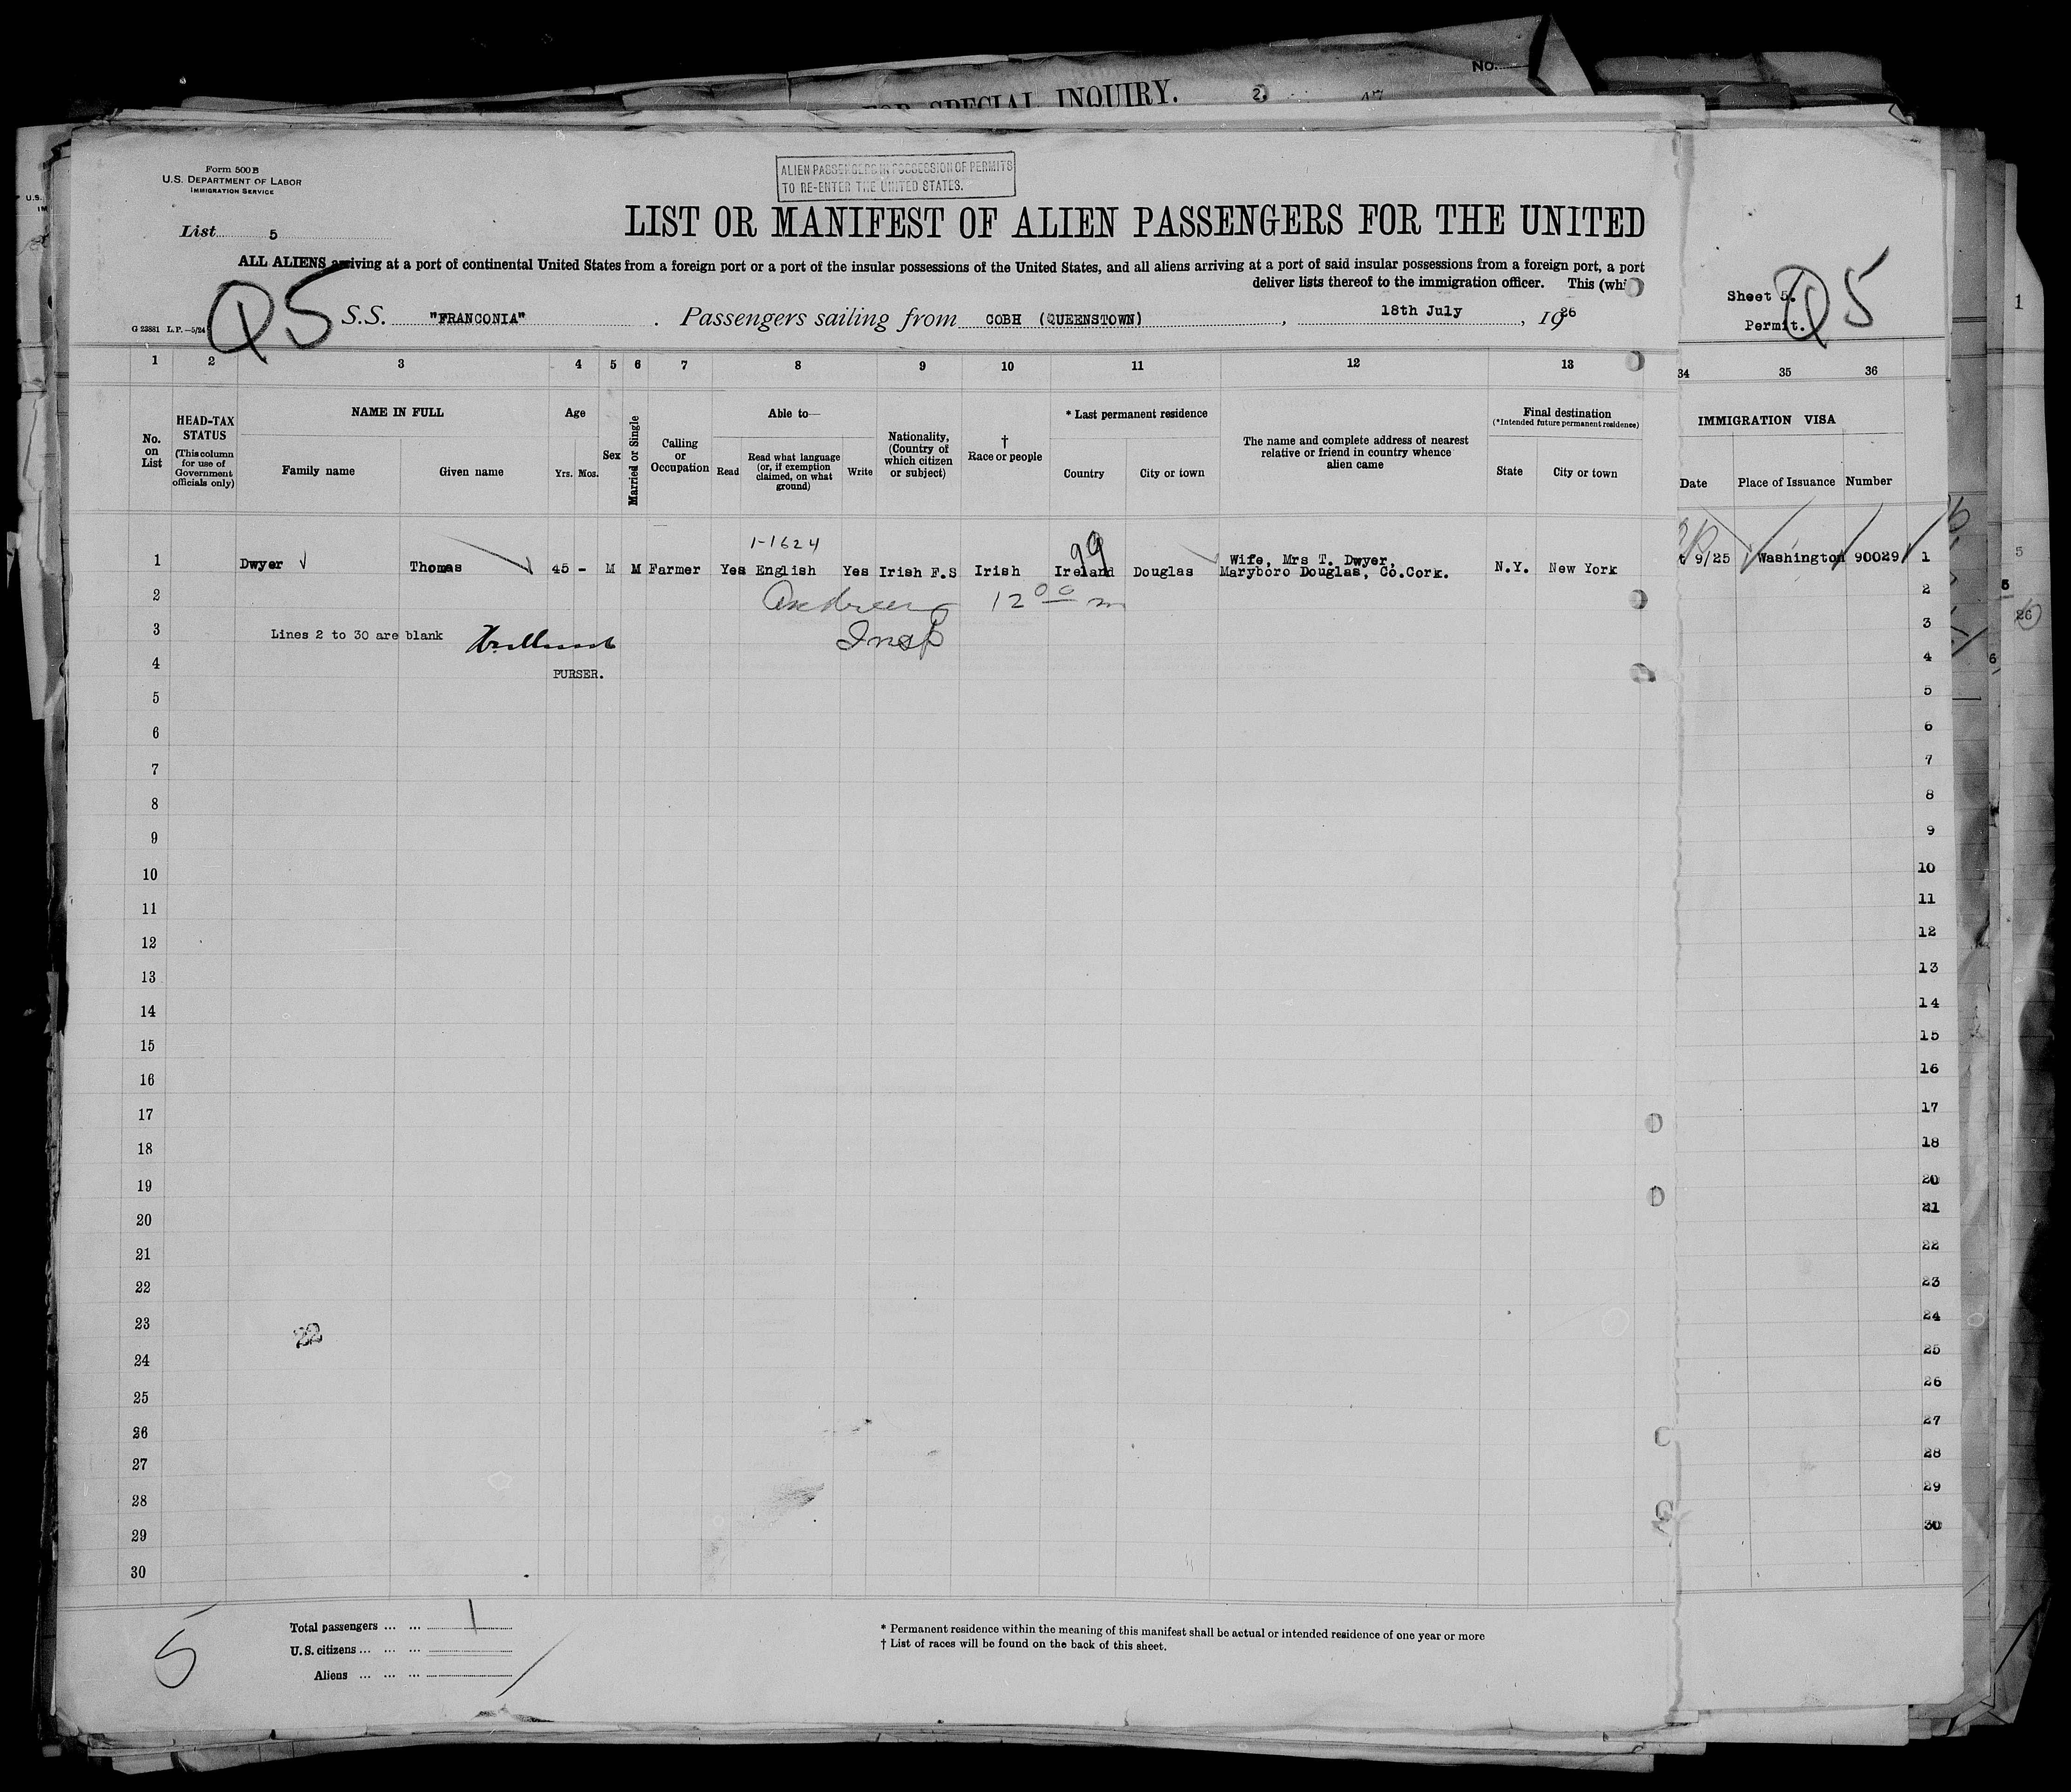 FOR SPECIAL INQUIRY.
No.
2.
Form 500 B
U.S. DEPARTMENT OF LABOR
IMMIGRATION SERVICE
ALIEN PASSENGERS IN POSSESSION OF PERMITS
TO RE-ENTER THE UNITED STATES.
LIST OR MANIFEST OF ALIEN PASSENGERS FOR THE UNITED
List 5
ALL ALIENS arriving at a port of continental United States from a foreign port or a port of the insular possessions of the United States, and all aliens arriving at a port of said insular possessions from a foreign port, a port
deliver lists thereof to the immigration officer. This (whi
Q5
Sheet 5.
Permit.
Q5
G 23881 L.P.—5/24
S.S. "FRANCONIA" . Passengers sailing from COBH (QUEENSTOWN) , 18th July , 1926
1 2 3 4 5 6 7 8 9 10 11 12 13 34 35 36
No. on List
HEAD-TAX STATUS
(This column for use of Government officials only)
NAME IN FULL
Family name Given name
Age
Yrs. Mos.
Sex
Married or Single
Calling or Occupation
Able to—
Read
Read what language (or, if exemption claimed, on what ground)
Write
Nationality, (Country of which citizen or subject)
† Race or people
* Last permanent residence
Country City or town
The name and complete address of nearest relative or friend in country whence alien came
Final destination
(*Intended future permanent residence)
State City or town
IMMIGRATION VISA
Date Place of Issuance Number
1-1624
99
1 Dwyer Thomas 45 - M M Farmer Yes English Yes Irish F.S Irish Ireland Douglas Wife, Mrs T. Dwyer, Maryboro Douglas, Co.Cork. N.Y. New York t 9/25 Washington 90029 1
2 12 00 m 2
3 Lines 2 to 30 are blank Insp 3
4 PURSER. 4
5 5
6 6
7 7
8 8
9 9
10 10
11 11
12 12
13 13
14 14
15 15
16 16
17 17
18 18
19 20
20 21
21 22
22 23
23 24
22
24 25
25 26
26 27
27 28
28 29
29 30
30
5
Total passengers ... ... 1
U.S. citizens ... ... ...
Aliens ... ... ...
* Permanent residence within the meaning of this manifest shall be actual or intended residence of one year or more
† List of races will be found on the back of this sheet.